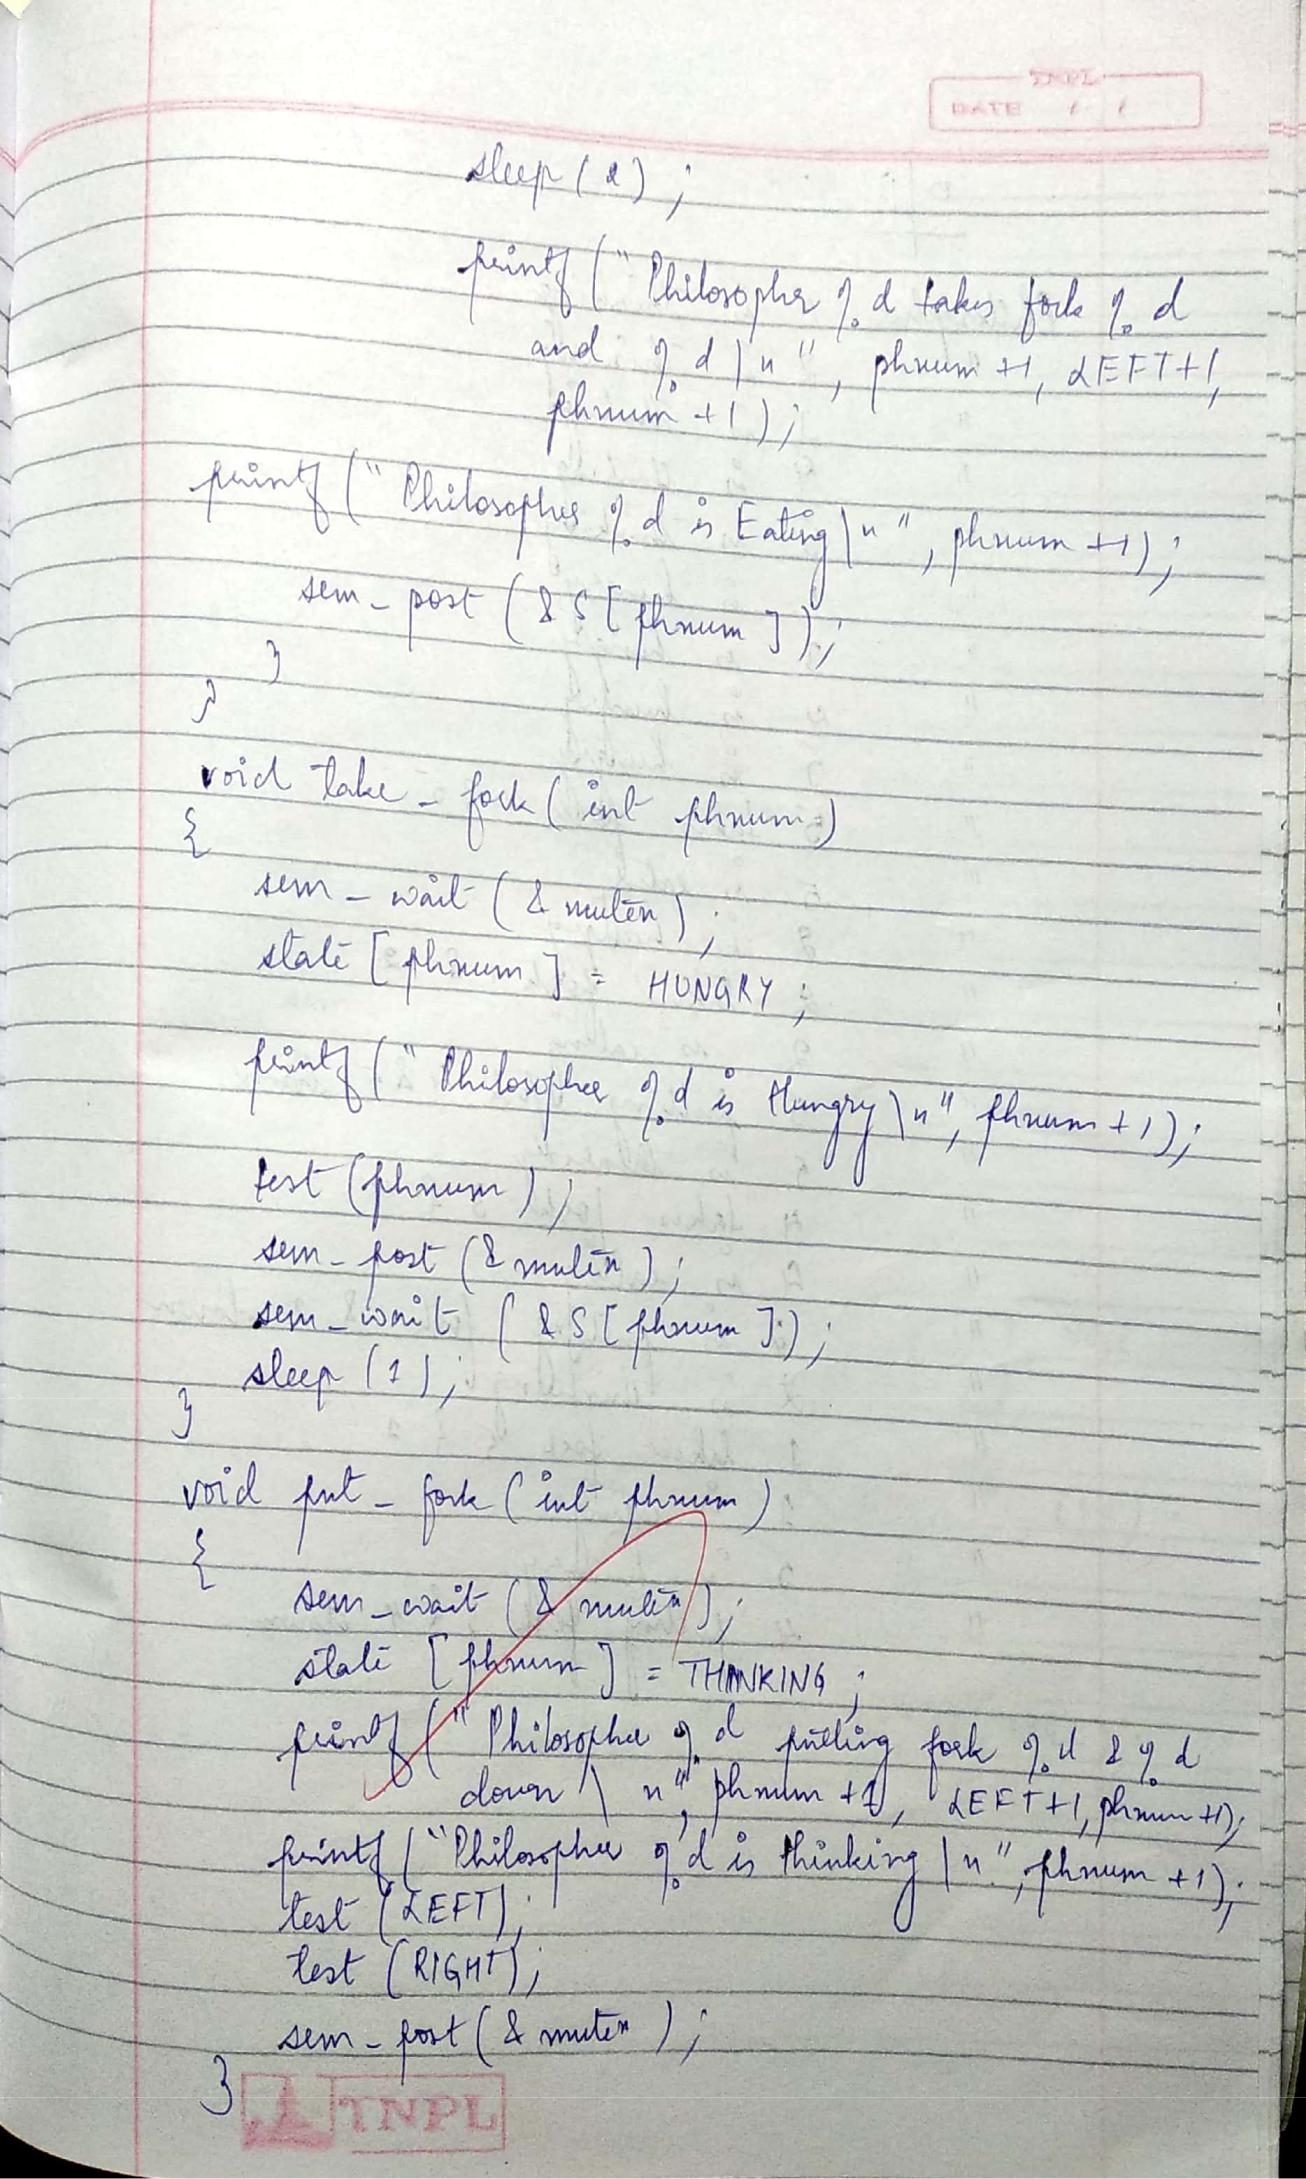 TNPL
DATE / /
sleep (2);
printf ("Philosopher %d takes fork %d
and %d \n", phnum +1, LEFT+1,
phnum +1);
printf ("Philosopher %d is Eating \n", phnum +1);
sem_post (&S[phnum]);
}
}
void take_fork (int phnum)
{
sem_wait (&mutex);
state [phnum] = HUNGRY;
printf ("Philosopher %d is Hungry \n", phnum+1);
test (phnum);
sem_post (&mutex);
sem_wait (&S[phnum]);
sleep (1);
}
void put_fork (int phnum)
{
sem_wait (&mutex);
state [phnum] = THINKING;
printf ("Philosopher %d putting fork %d & %d
down \n", phnum +1, LEFT+1, phnum +1);
printf ("Philosopher %d is thinking \n", phnum +1);
test (LEFT);
test (RIGHT);
sem_post (&mutex);
}
TNPL